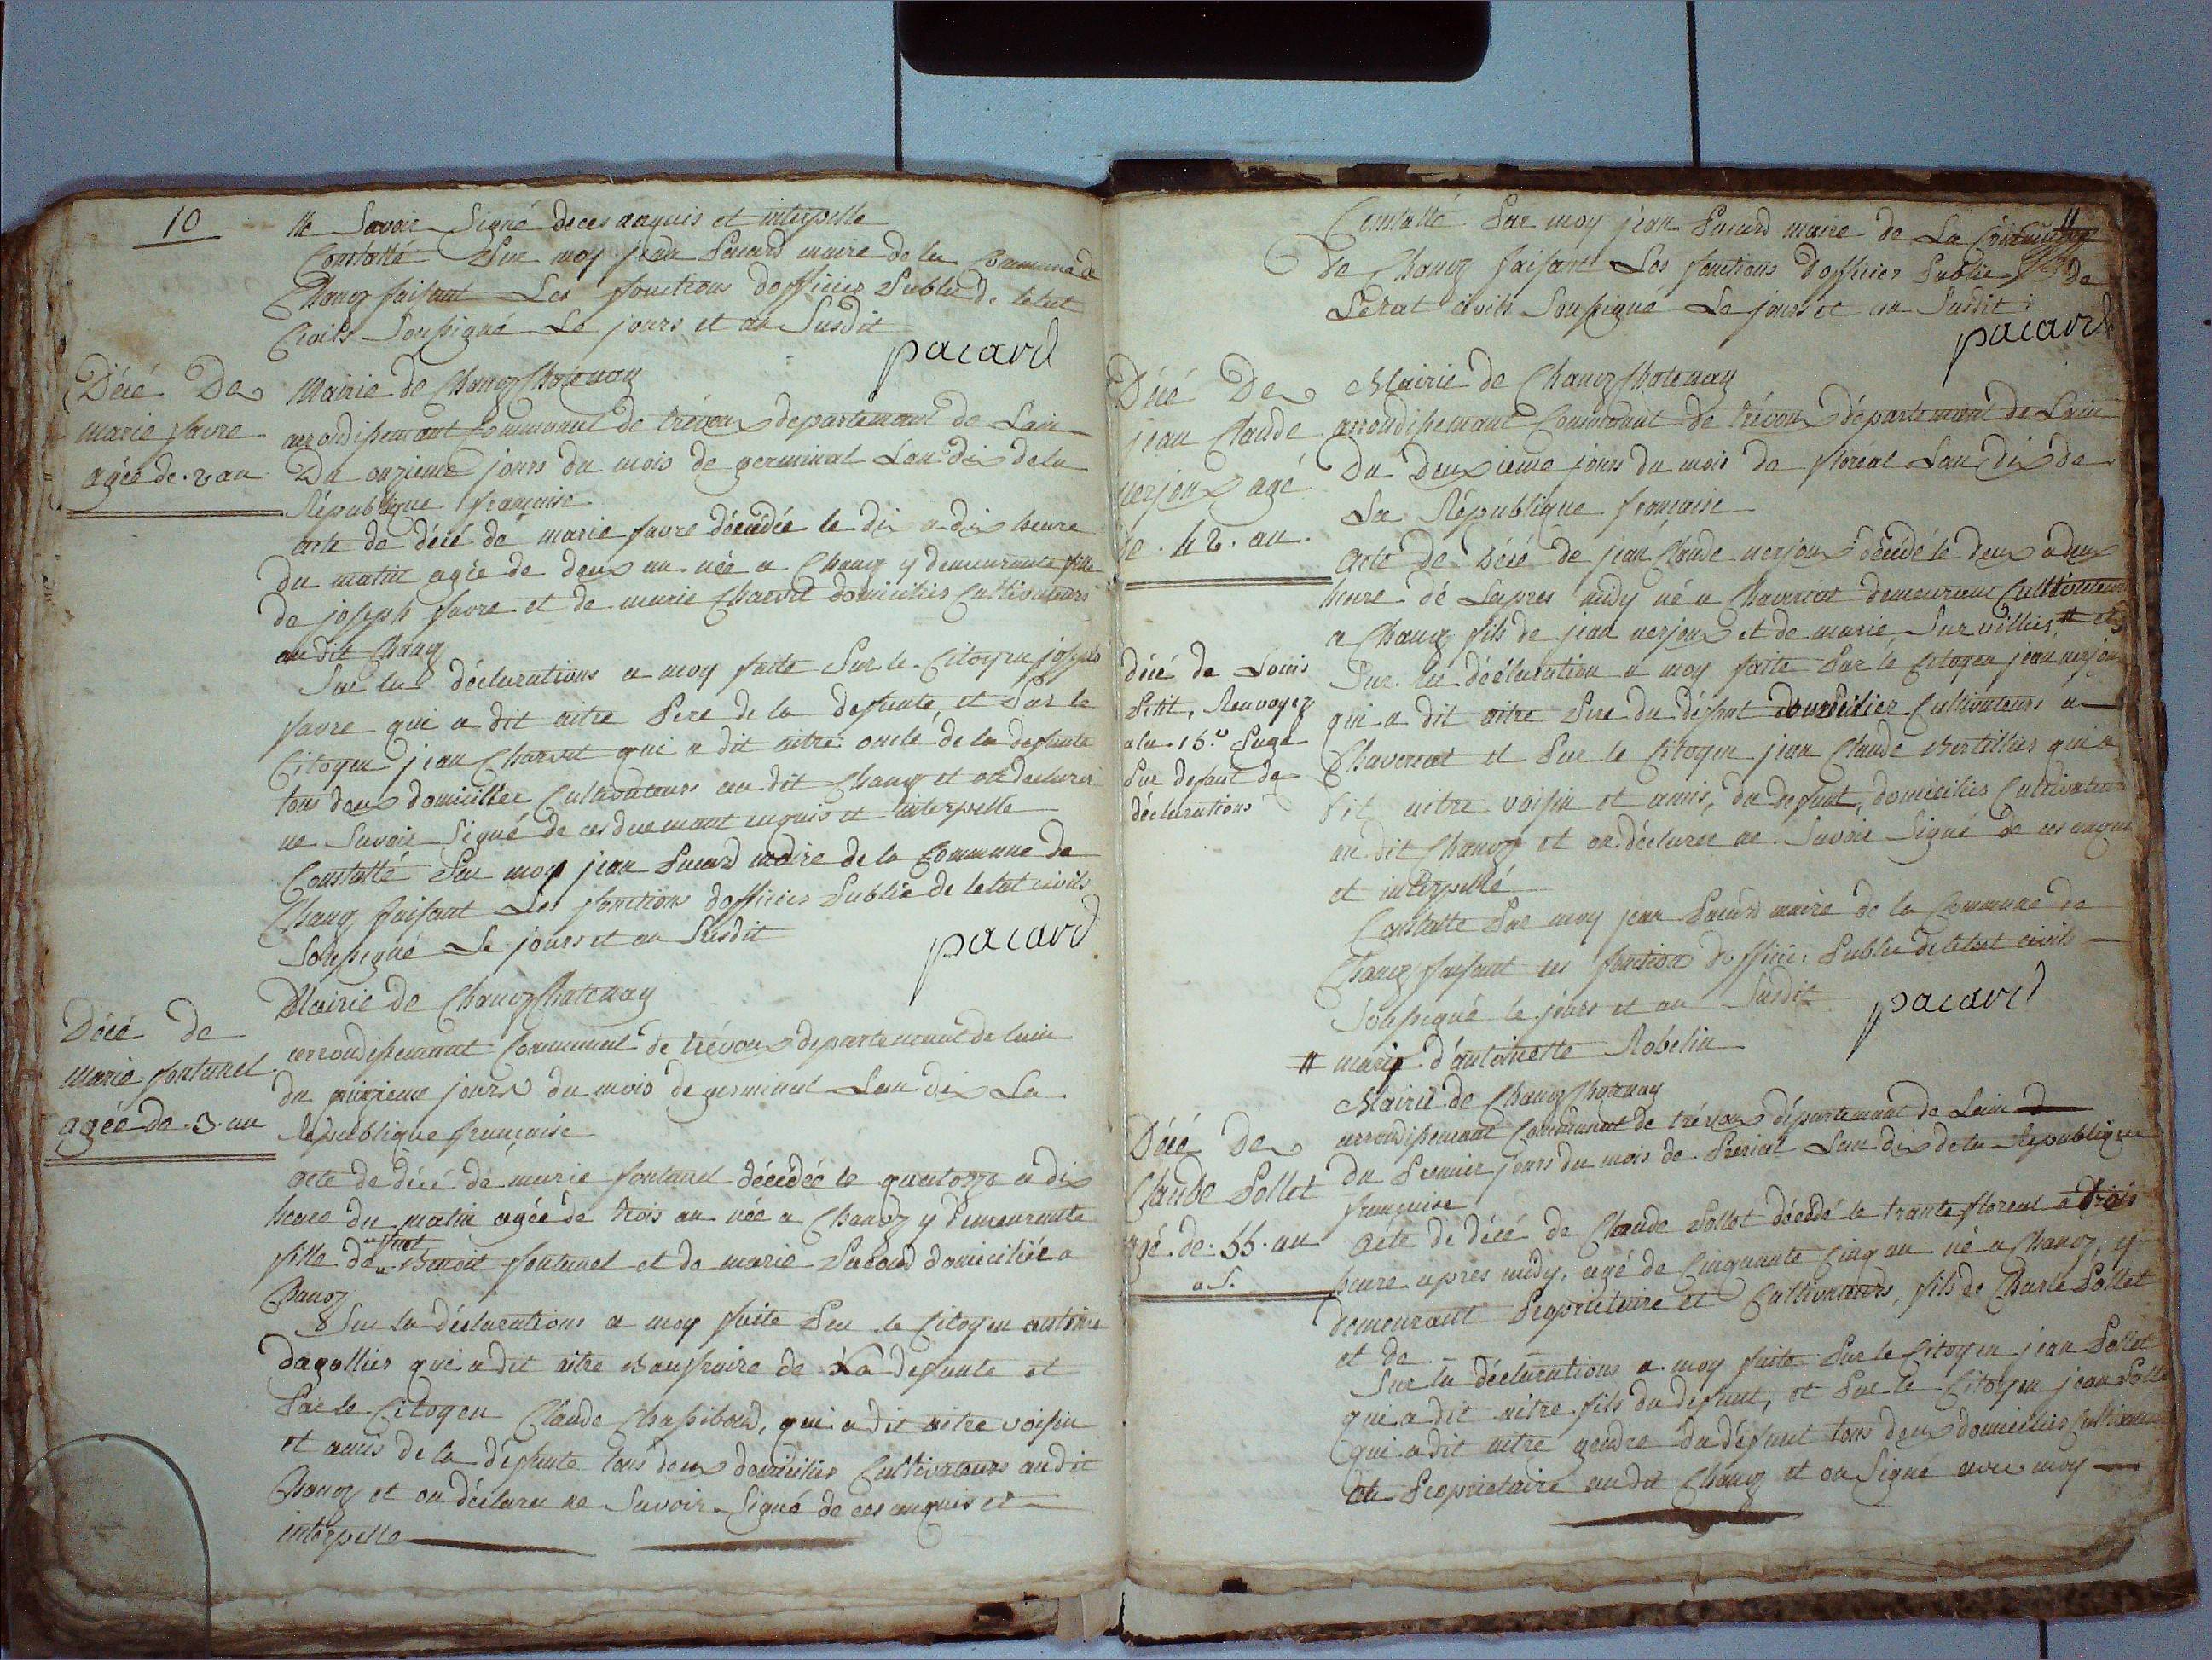 10
ne Savoir Signé de ces anquis et interpelle
Constatté Par moy jean Pacard maire de la Commune de
Chanoz faisant Les fonctions dofficier Public de letat
Civils Soussigné Le jours et an Susdit
pacard
Décé De
marie favre
agée de . 2 an
Mairie de Chanoz Chatenay
arrondissemant Communal de trévoux departemant de Lain
Du onzieme jours du mois de germinal Lan dix de la
République française
acte de décé de marie favre décédée le dix a dix heure
du matin agée de deux an née a Chanoz y demeurante fille
de joseph favre et de marie Charvet domiciliés Cultivateurs
au dit Chanoz
Sur la déclarations a moy faite Par le Citoyen joseph
favre qui a dit aitre Pere de la defunte, et Par le
Citoyen jean Charvet qui a dit aitre oncle de la defunte
tous deux domicillier Cultivateurs au dit Chanoz et on declarer
ne Savoir Signé de ces duemant enquis et interpelle
Constatté Par moy jean Pacard maire de la Commune de
Chanoz faisant Les fonction dofficier Public de letat civils
Soussigné Le jours et an Susdit
pacard
Décé de
marie fontanel
agée de . 3 . an
Mairie de Chanoz Chatenay
arrondissemant Communal de trévoux departemant de lain
du quinzieme jours du mois de germinal Lan dix La
République française
acte de décé de marie fontanel décédée le quatorze a dix
heure du matin agée de trois an née a Chanoz y demeurante
fille de Benoit fontanel et de marie Pacard domiciliée a
Chanoz
Sur la déclarations a moy faite Par le Citoyen antoine
dagallier qui a dit aitre Baupraire de La defunte et
Par le Citoyen Claude Chassiboud, qui a dit aitre voisin
et amis de la défunte tous deux domiciliés Cultivateurs au dit
Chanoz et on déclarer ne Savoir Signé de ces anquis et
interpelle
11
Constatté Par moy jean Pacard maire de La Commune
de Chanoz faisant Les fonctions dofficier Public de
Letat civils Soussigné Le jours et an Susdit
pacard
Décé De
jean Claude
nerjoux agé
de . 42 . an .
Mairie de Chanoz Chatenay
arrondissemant Communal de trévoux département de Lain
Du Deuxieme jours du mois de floreal Lan dix de
La République française
Acte de Décé de jean Claude nerjoux décédé le deux a deux
heure dé Lapres midy né a Chaveriat demeurant Cultivateur
a Chanoz fils de jean nerjoux et de marie Survillier, # et
Sur la déclaration a moy faite Par le Citoyen jean nerjoux
qui a dit aitre Pere du défunt domicilier Cultivateurs a
Chaveriat et Par le Citoyen jean Claude Bertillier qui a
dit aitre voisin et amis, du defunt, domiciliés Cultivateur
au dit Chanoz et on déclarer ne Savoir Signé de ces anquis
et interpellé
Constatte Par moy jean Pacard maire de la Commune de
Chanoz faisant les fonction dofficier Public de letat civils
Soussigné le jours et an Susdit
pacard
# mari d'antoinette Robelin
décé de Louis
Petit, Renvoyez
a la . 15.e Page
Par defaut de
déclarations
Décé De
Claude Pollet
agé . de . 55 . an
Mairie de Chanoz Chatenay
arrondissemant Communal de trévoux département de Lain
du Premier jours du mois de Prerial Lan dix de la Republique
française
Acte de décé de Claude Pollet décédé le trante floreal a trois
heure apres midy, agé de Cinquante Cinq an né a Chanoz, y
demeurant Propriétaire et Cultivateurs, fils de Charle Pollet
et de
Sur la déclarations a moy faite Par le Citoyen jean Pollet
qui a dit aitre fils du defunt, et Par le Citoyen jean
qui a dit aitre gendre du défunt tous deux domiciliés Cultivateurs
et Proprietaire au dit Chanoz et on Signé avec moy